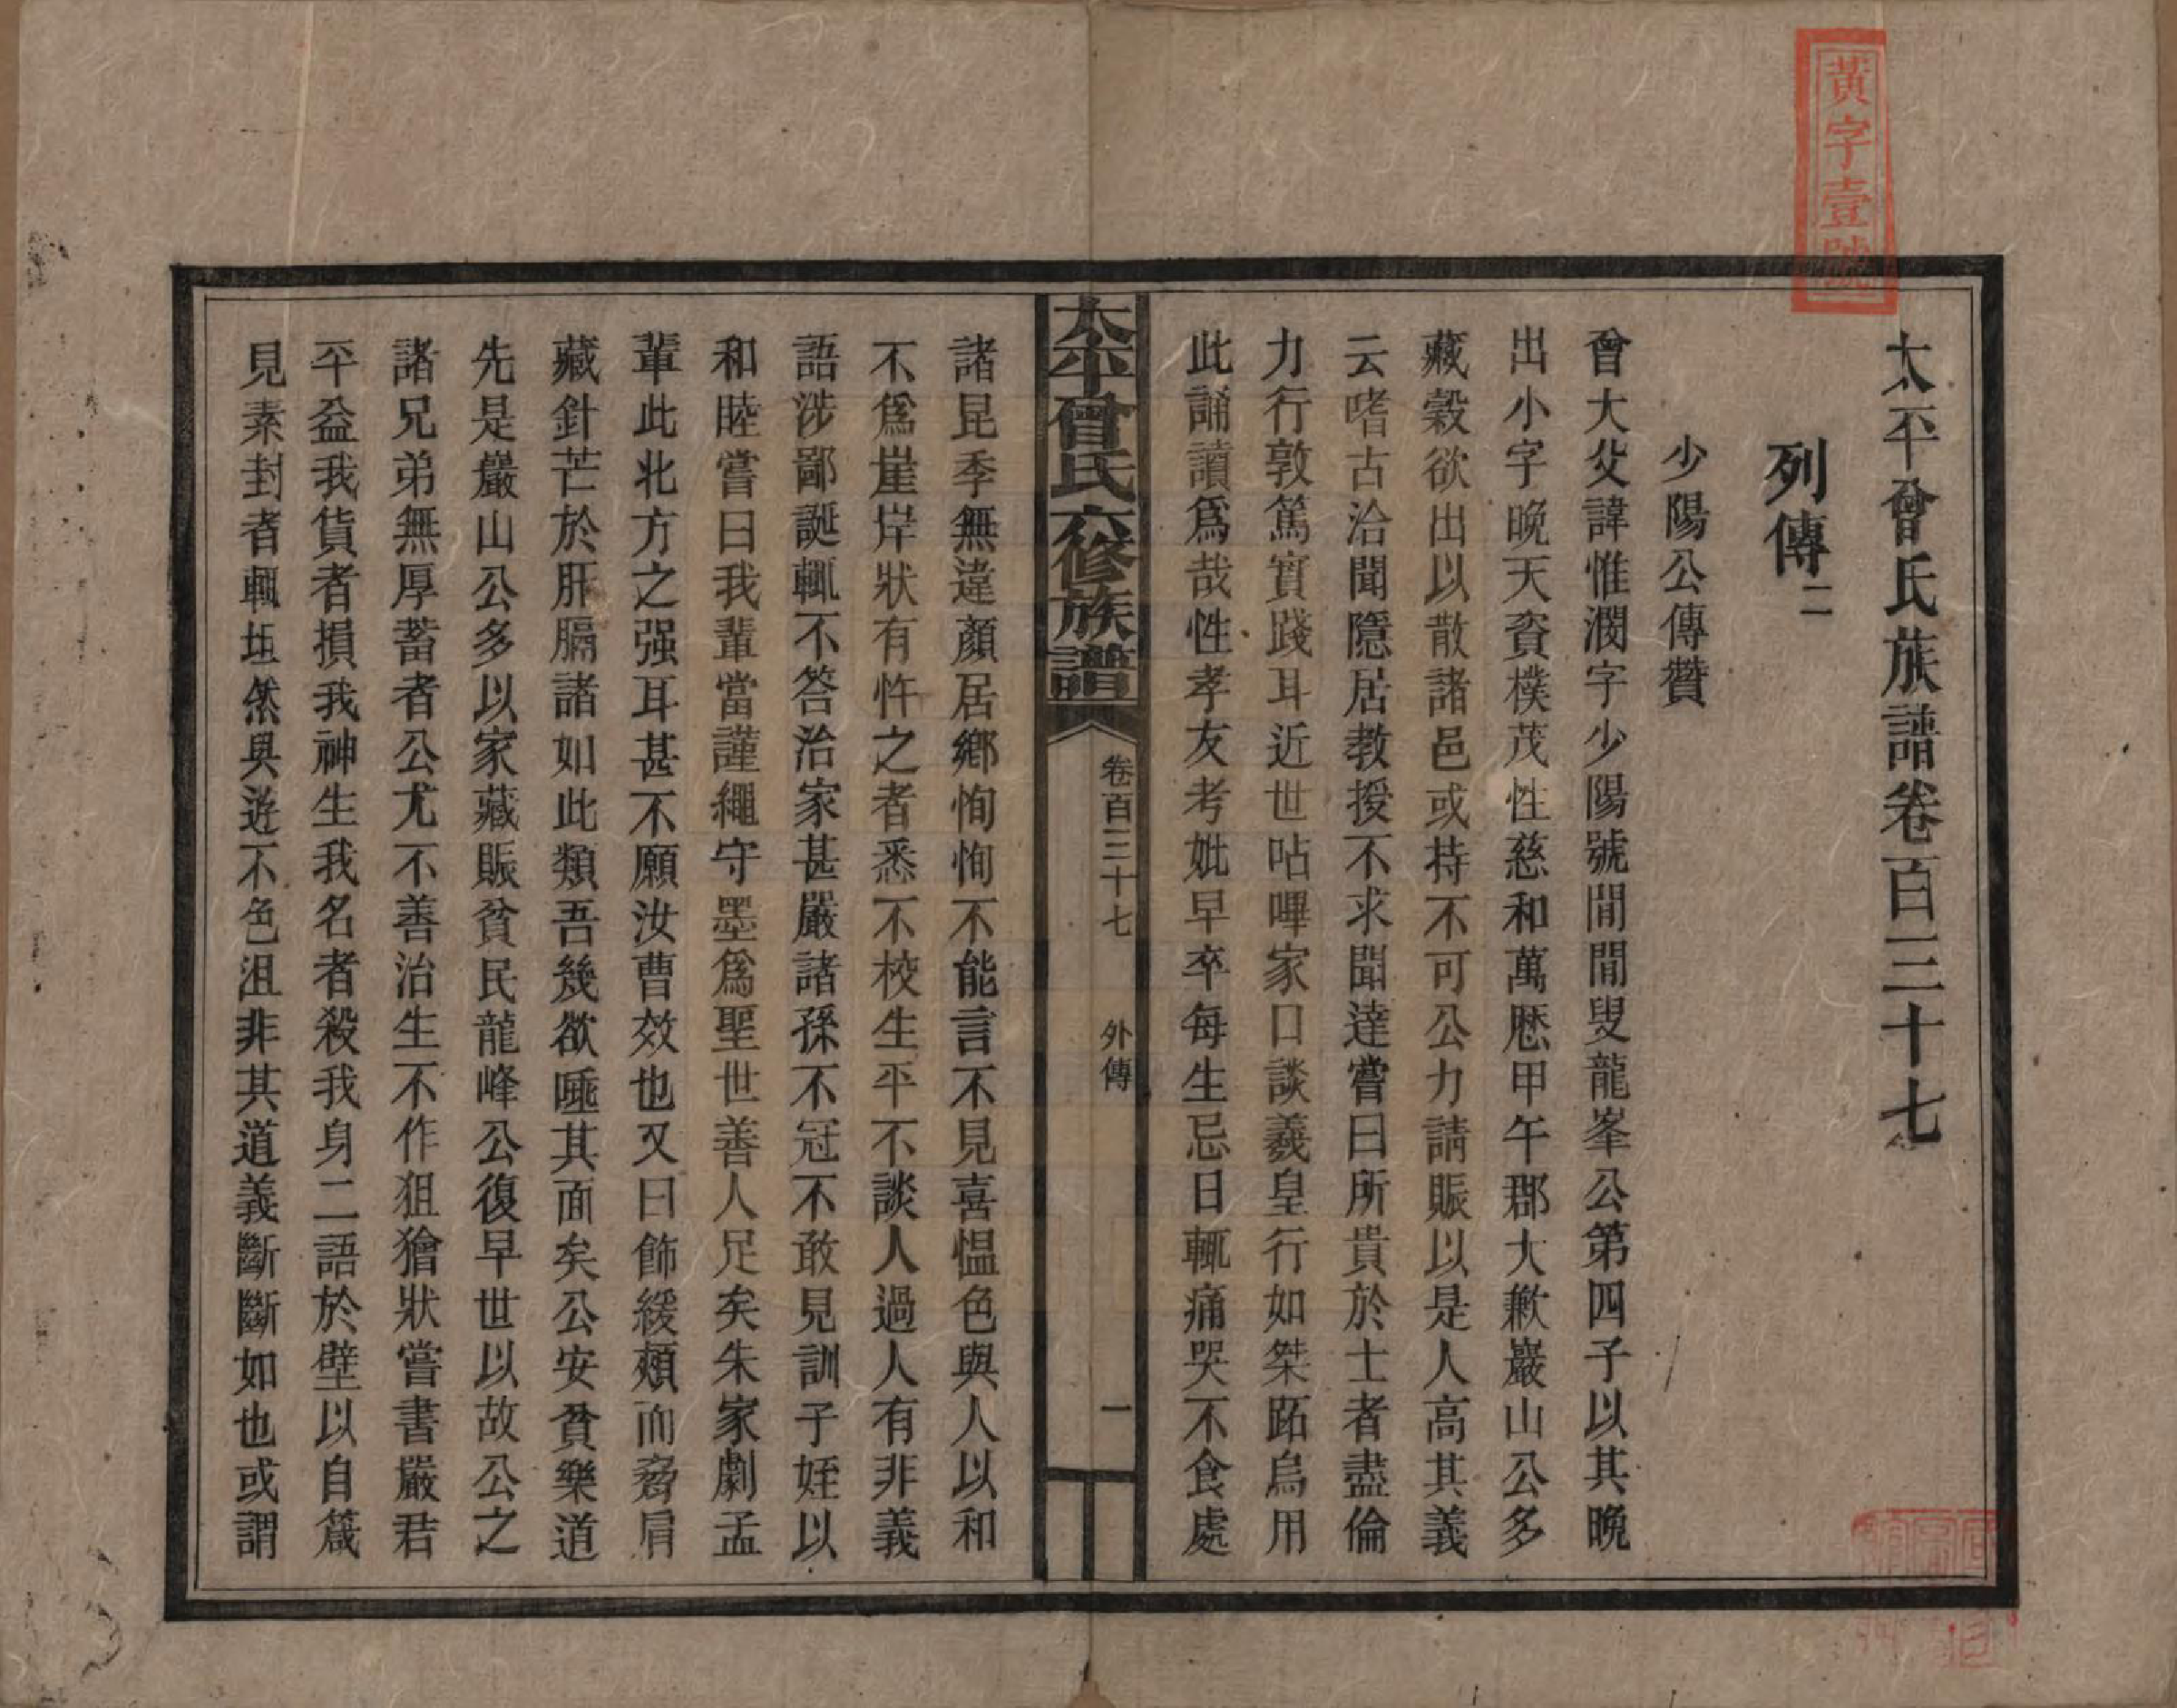 黃字壹號
太平曾氏族譜卷百三十七
列傳二
少陽公傳贊
曾大父諱惟潤字少陽號閒閒叟龍峯公第四子以其晚
出小字晚天資樸茂性慈和萬厯甲午郡大歉巖山公多
藏穀欲出以散諸邑或持不可公力請賑以是人高其義
云嗜古洽聞隱居教授不求聞達嘗曰所貴於士者盡倫
力行敦篤實踐耳近世呫嗶家口談羲皇行如桀跖烏用
此誦讀爲哉性孝友考妣早卒每生忌日輒痛哭不食處
太平曾氏六修族譜
卷百三十七
外傳
一
諸昆季無違顏居鄉恂恂不能言不見喜慍色與人以和
不爲崖岸狀有忤之者悉不校生平不談人過人有非義
語涉鄙誕輒不答治家甚嚴諸孫不冠不敢見訓子姪以
和睦嘗曰我輩當謹繩守墨爲聖世善人足矣朱家劇孟
輩此北方之强耳甚不願汝曹效也又曰飾緩頰而脅肩
藏針芒於肝膈諸如此類吾幾欲唾其面矣公安貧樂道
先是巖山公多以家藏賑貧民龍峰公復早世以故公之
諸兄弟無厚蓄者公尤不善治生不作狙獪狀嘗書嚴君
平益我貨者損我神生我名者殺我身二語於壁以自箴
見素封者輒坦然與遊不色沮非其道義斷斷如也或謂